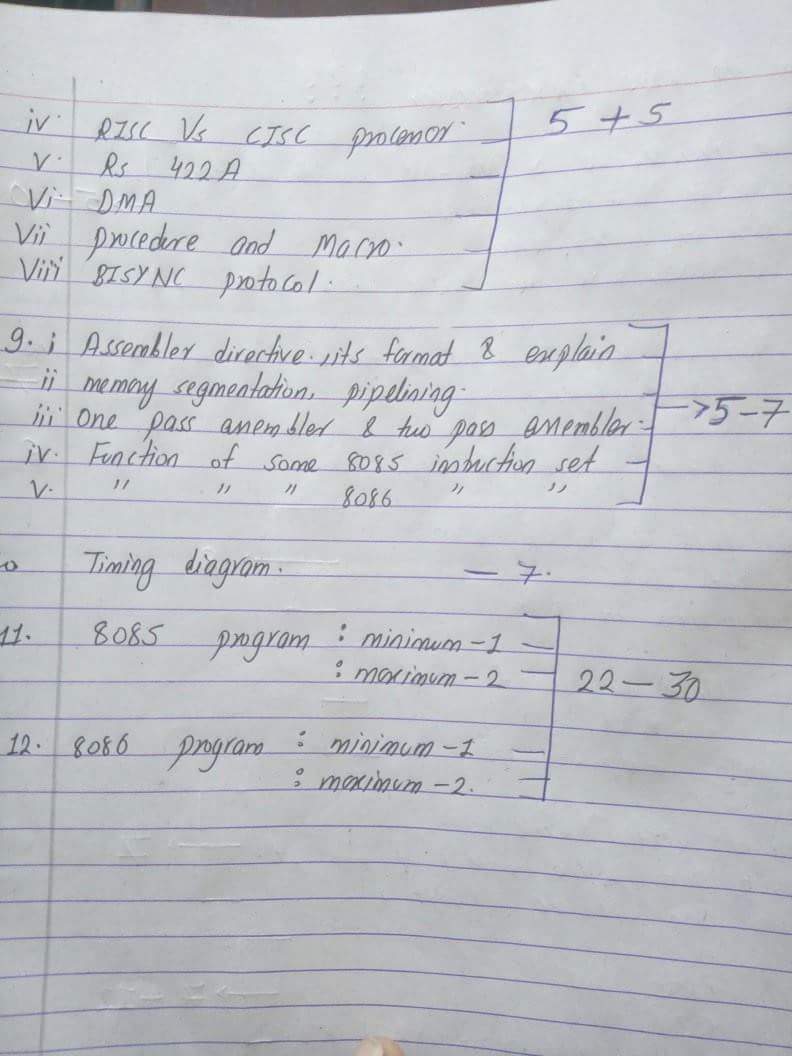 iv. RISC Vs CISC processor. 5 + 5
v. Rs 422A
vi. DMA
vii procedure and Macro.
viii BISYNC protocol.
9. i Assembler directive, its format & explain
ii memory segmentation, pipelining.
iii One pass assembler & two pass assembler. → 5-7
iv. Function of some 8085 instruction set
v. " " " 8086 " "
0 Timing diagram. - 7.
11. 8085 program : minimum - 1
: maximum - 2 22 - 30
12. 8086 program : minimum - 1
: maximum - 2.